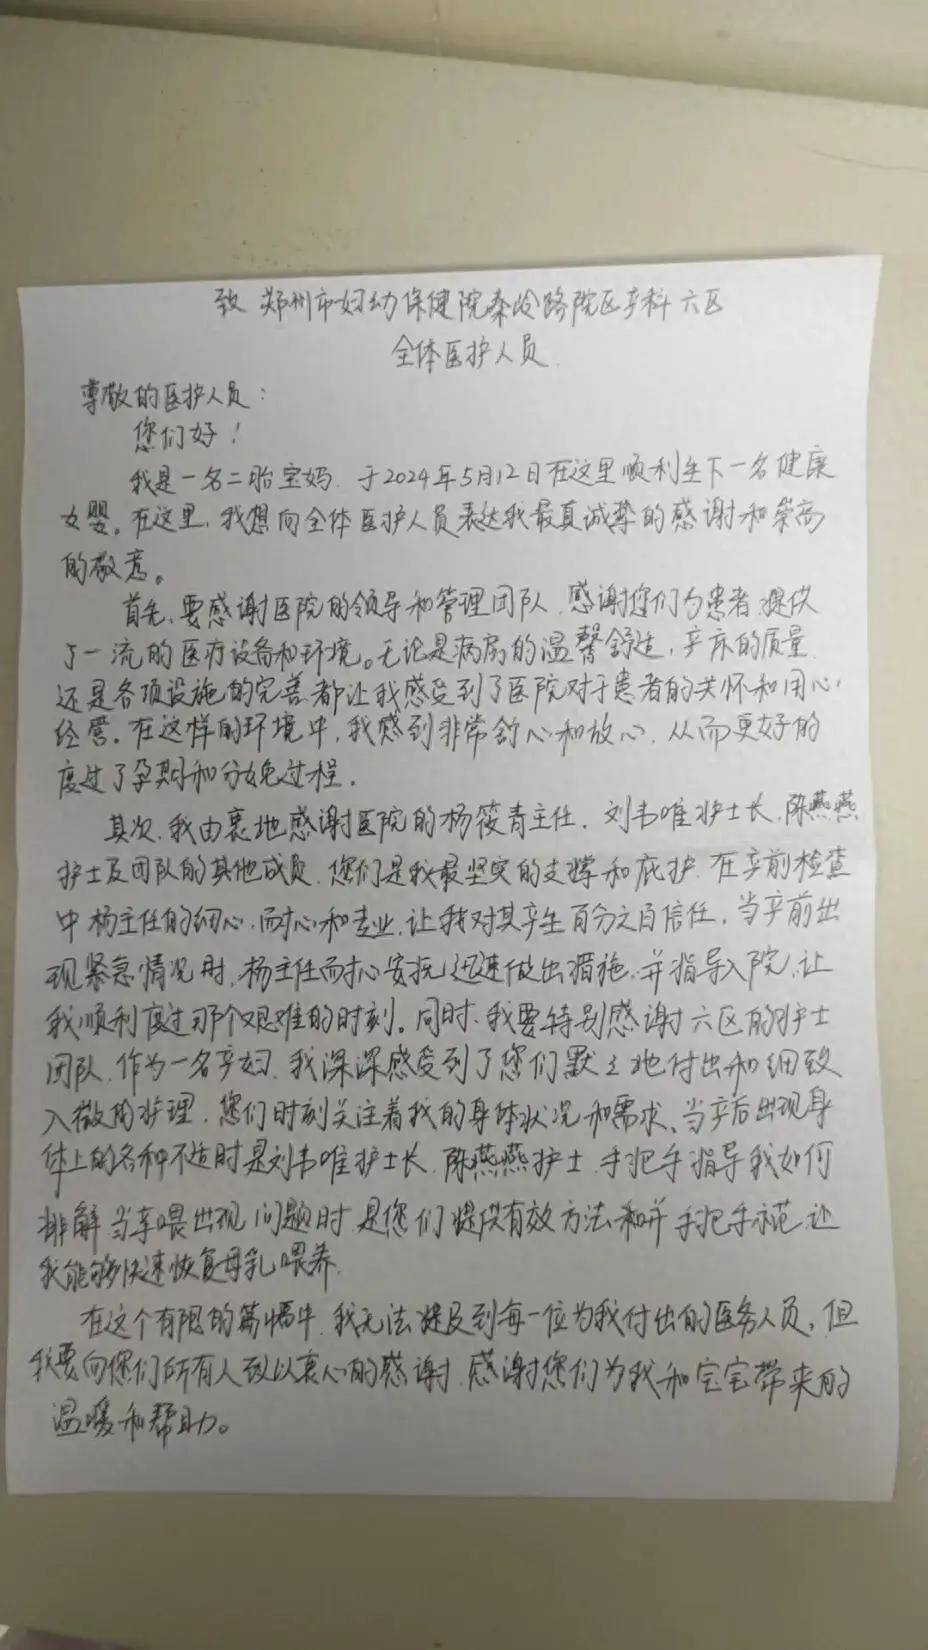 致 郑州市妇幼保健院秦岭路院区产科六区
全体医护人员
尊敬的医护人员：
您们好！
我是一名二胎宝妈，于2024年5月12日在这里顺利生下一名健康
女婴。在这里，我想向全体医护人员表达我最真诚挚的感谢和崇高
的敬意。
首先，要感谢医院的领导和管理团队，感谢您们为患者提供
了一流的医疗设备和环境。无论是病房的温馨舒适，产床的质量
还是各项设施的完善都让我感受到了医院对于患者的关怀和用心
经营。在这样的环境中，我感到非常舒心和放心，从而更好的
度过了孕期和分娩过程。
其次，我由衷地感谢医院的杨筱青主任，刘韦唯护士长，陈燕燕
护士及团队的其他成员，您们是我最坚实的支撑和庇护，在产前检查
中杨主任的细心，耐心和专业，让我对其产生百分之百信任，当产前出
现紧急情况时，杨主任耐心安抚迅速做出措施，并指导入院，让
我顺利度过那个艰难的时刻。同时，我要特别感谢六区的护士
团队，作为一名产妇，我深深感受到了您们默々地付出和细致
入微的护理，您们时刻关注着我的身体状况和需求、当产后出现身
体上的各种不适时是刘韦唯护士长，陈燕燕护士，手把手指导我如何
排解，当母喂出现问题时，是您们提供有效方法和并手把手示范，让
我能够快速恢复母乳喂养，
在这个有限的篇幅中，我无法提及到每一位为我付出的医务人员，但
我要向您们所有人致以衷心的感谢，感谢您们为我和宝宝带来的
温暖和帮助。